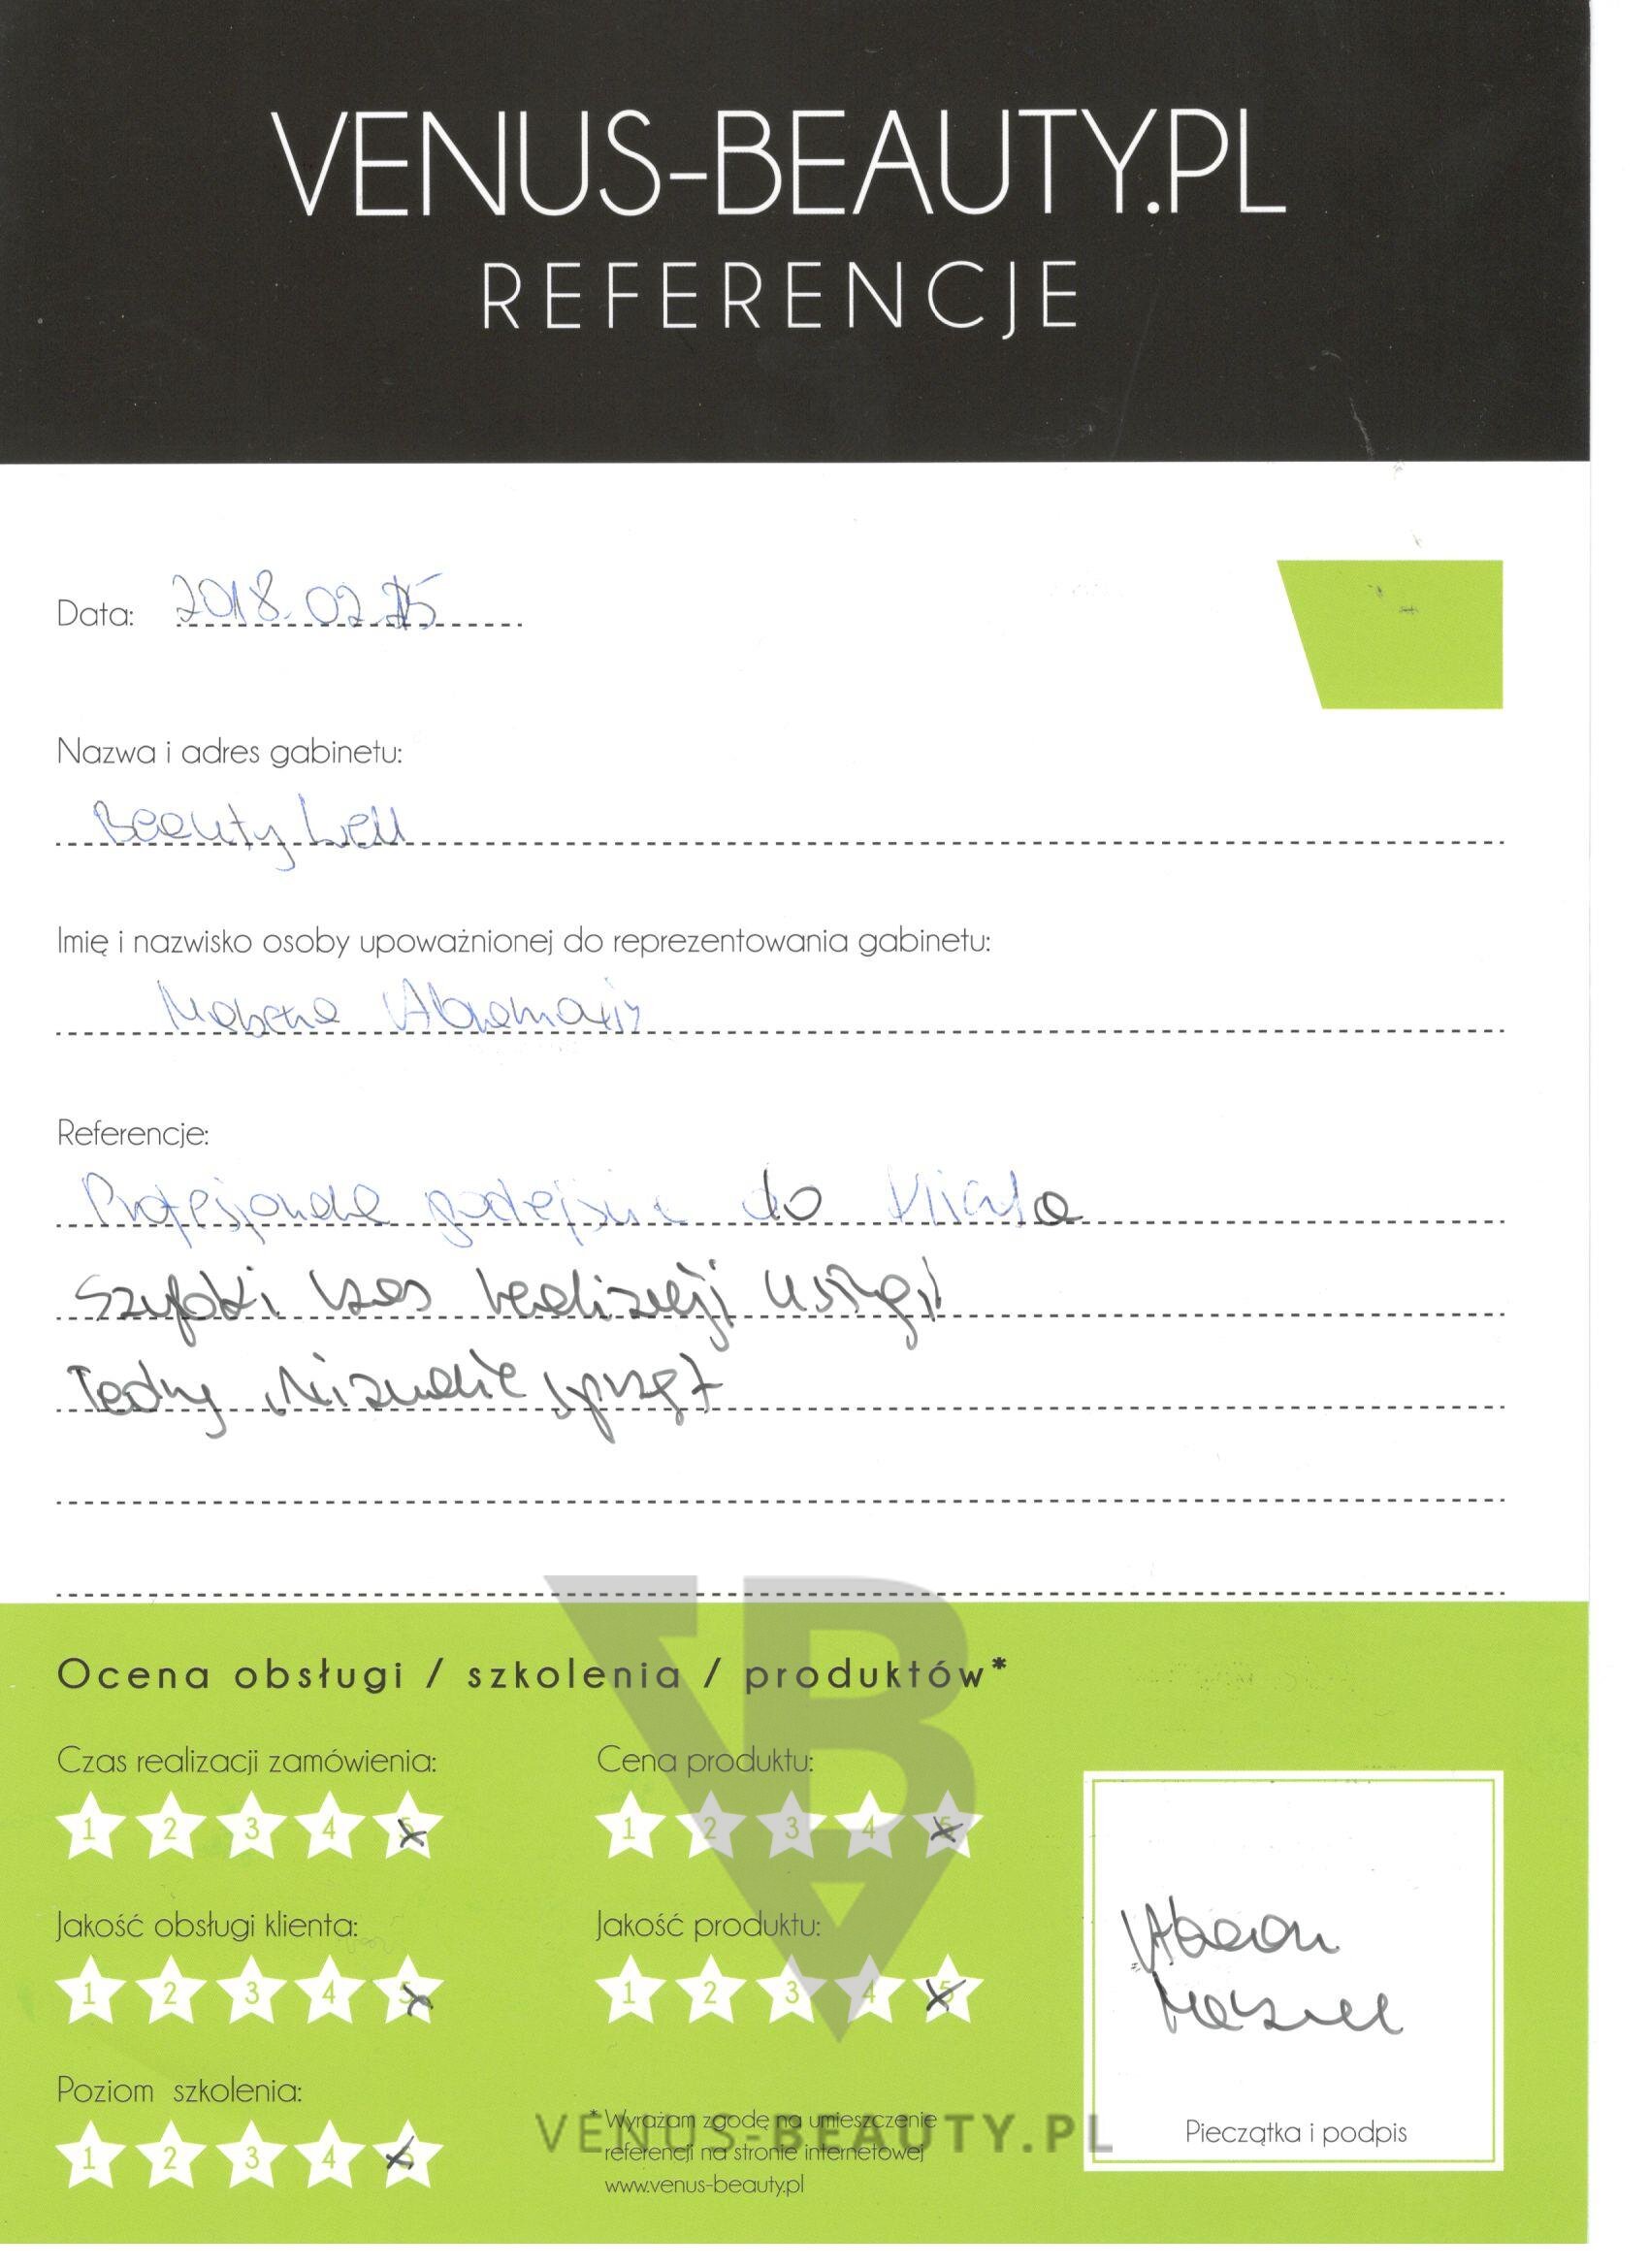 VENUS-BEAUTY.PL
REFERENCJE
Data: 2018.02.
Nazwa i adres gabinetu:
Beauty Well
Imię i nazwisko osoby upoważnionej do reprezentowania gabinetu:
Referencje:
Profesjonalne podejście do klienta
Szybki czas realizacji usługi
Ładny wizualnie sprzęt
Ocena obsługi / szkolenia / produktów*
Czas realizacji zamówienia:
1 2 3 4 5
Cena produktu:
1 2 3 4 5
Jakość obsługi klienta:
1 2 3 4 5
Jakość produktu:
1 2 3 4 5
Poziom szkolenia:
1 2 3 4 5
* Wyrażam zgodę na umieszczenie
referencji na stronie internetowej
www.venus-beauty.pl
VENUS-BEAUTY.PL
Pieczątka i podpis